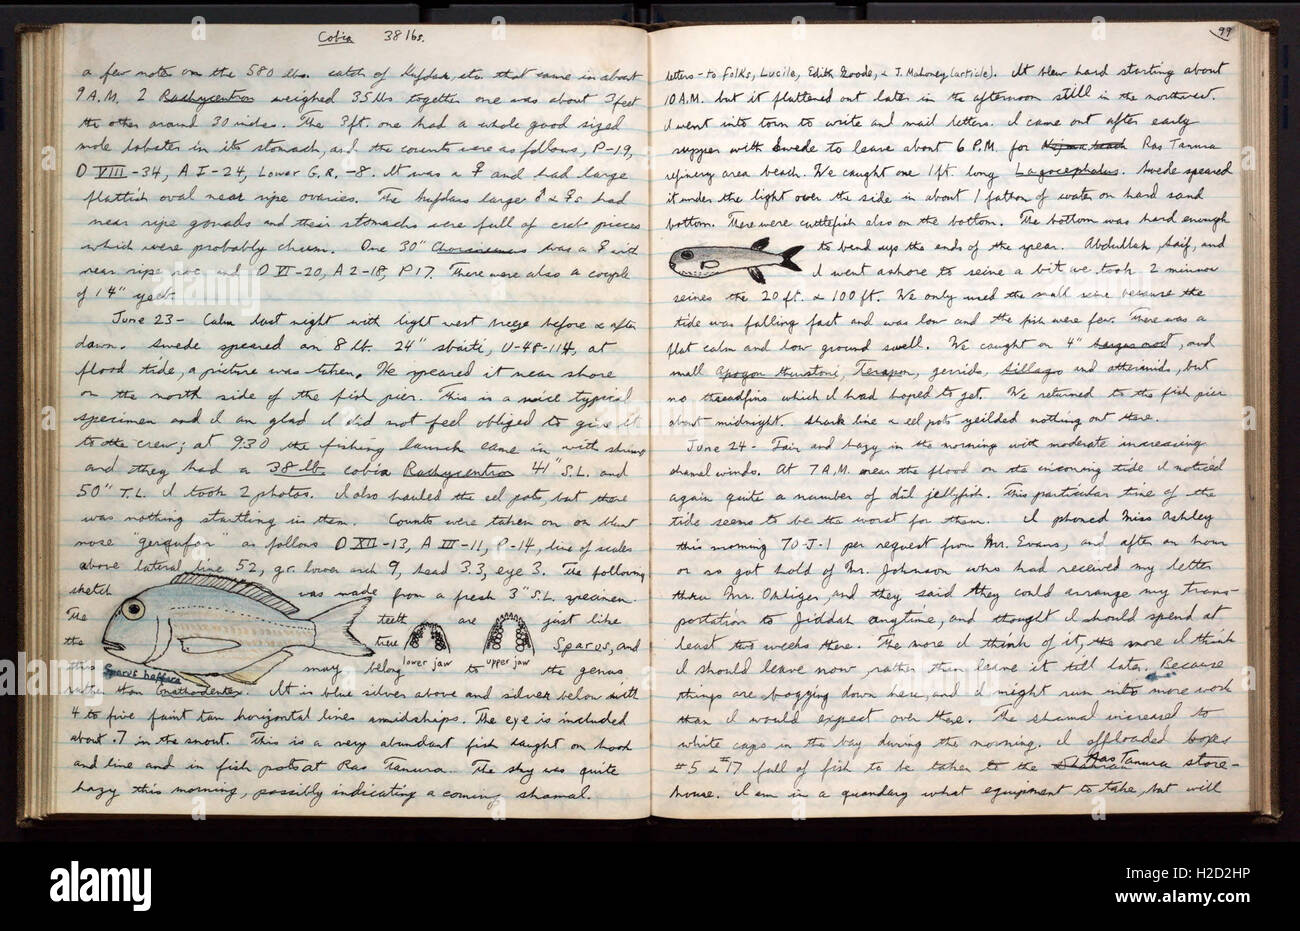 Cobia 38 lbs.
a few notes on the 580 lbs. catch of Hufdar, etc. that came in about
9 A.M. 2 Rachycentron weighed 35 lbs together one was about 3 feet
the other around 30 inches. The 3 ft. one had a whole good sized
mole lobster in its stomach, and the counts were as follows, P-19,
D VIII-34, A I-24, Lower G.R. -8. It was a ♀ and had large
flattish oval near ripe ovaries. The hufdars large ♂ & ♀s had
near ripe gonads and their stomachs were full of crab pieces
which were probably chum. One 30" Chorinemus was a ♀ with
near ripe roe, and D VI-20, A 2-18, P 17. There were also a couple
of 14"
June 23 - Calm last night with light west breeze before & after
dawn. Swede speared an 8 lb. 24" sbaiti, U-48-114, at
flood tide, a picture was taken. He speared it near shore
on the north side of the fish pier. This is a nice typical
specimen and I am glad I did not feel obliged to give it
to the crew; at 930 the fishing launch came in with shrimp
and they had a 38 lb. cobia Rachycentron 41" S.L. and
50" T.L. I took 2 photos. I also hauled the eel pots, but there
was nothing startling in them. Counts were taken on on blunt
nose "gergufan" as follows D XII-13, A III-11, P-14, line of scales
above lateral line 52, gr. lower arch 9, head 3.3, eye 3. The following
sketch was made from a fresh 3" S.L. specimen.
The teeth are just like
the true lower jaw upper jaw Spares, and
this Sparus haffara may belong to the genus
rather than Gnathodentex. It is blue silver above and silver below with
4 to five faint tan horizontal lines amidships. The eye is included
about .7 in the snout. This is a very abundant fish caught on hook
and line and in fish pots at Ras Tanura. The sky was quite
hazy this morning, possibly indicating a coming shamal.
99
letters - to Folks, Lucile, Edith Goode, & J. Mahoney (article). It blew hard starting about
10 A.M. but it flattened out later in the afternoon still in the northwest.
I went into town to write and mail letters. I came out after early
supper with Swede to leave about 6 P.M. for Ras Tanura
refinery area beach. We caught one 1 ft long Lagocephalus. Swede speared
it under the light over the side in about 1 fathom of water on hard sand
bottom. There were cuttlefish also on the bottom. The bottom was hard enough
to bend up the ends of the spear. Abdullah, Saif, and
I went ashore to seine a bit we took 2 minnow
seines the 20 ft. & 100 ft. We only used the small seine because the
tide was falling fast and was low and the fish were few. There was a
flat calm and low ground swell. We caught on 4", and
small Apogon thurstoni, Terapon, gerrids, Sillago and atherinids, but
no threadfins which I had hoped to get. We returned to the fish pier
about midnight. Shark line & eel pots yeilded nothing out there.
June 24 - Fair and hazy in the morning with moderate increasing
shamal winds. At 7 A.M. near the flood on the incoming tide I noticed
again quite a number of dil jellyfish. This particular time of the
tide seems to be the worst for them. I phoned Miss Ashley
this morning 70-J-1 per request from Mr. Evans, and after an hour
or so got hold of Mr. Johnson who had received my letter
thru Mr. Ohliger, and they said they could arrange my trans-
portation to Jiddah anytime, and thought I should spend at
least two weeks there. The more I think of it, the more I think
I should leave now, rather than leave it till later. Because
things are bogging down here, and I might run into more work
than I would expect over there. The shamal increased to
white caps in the bay during the morning. I offloaded boxes
#5 & #17 full of fish to be taken to the Ras Tanura store-
house. I am in a quandary what equipment to take, but will
alamy
www.alamy.com
H2D2HP